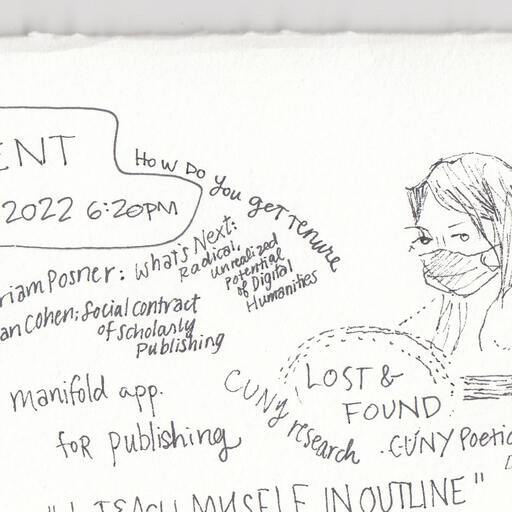 ENT
2022 6:20PM
How Do You get Tenure
riam Posner: What's Next:
Radical,
unrealized
Potential
of Digital
Humanities
an Cohen: Social contract
of Scholarly
Publishing
manifold app.
for publishing
LOST &
FOUND
CUNY research
CUNY Poetic
"I TEACH MYSELF IN OUTLINE"